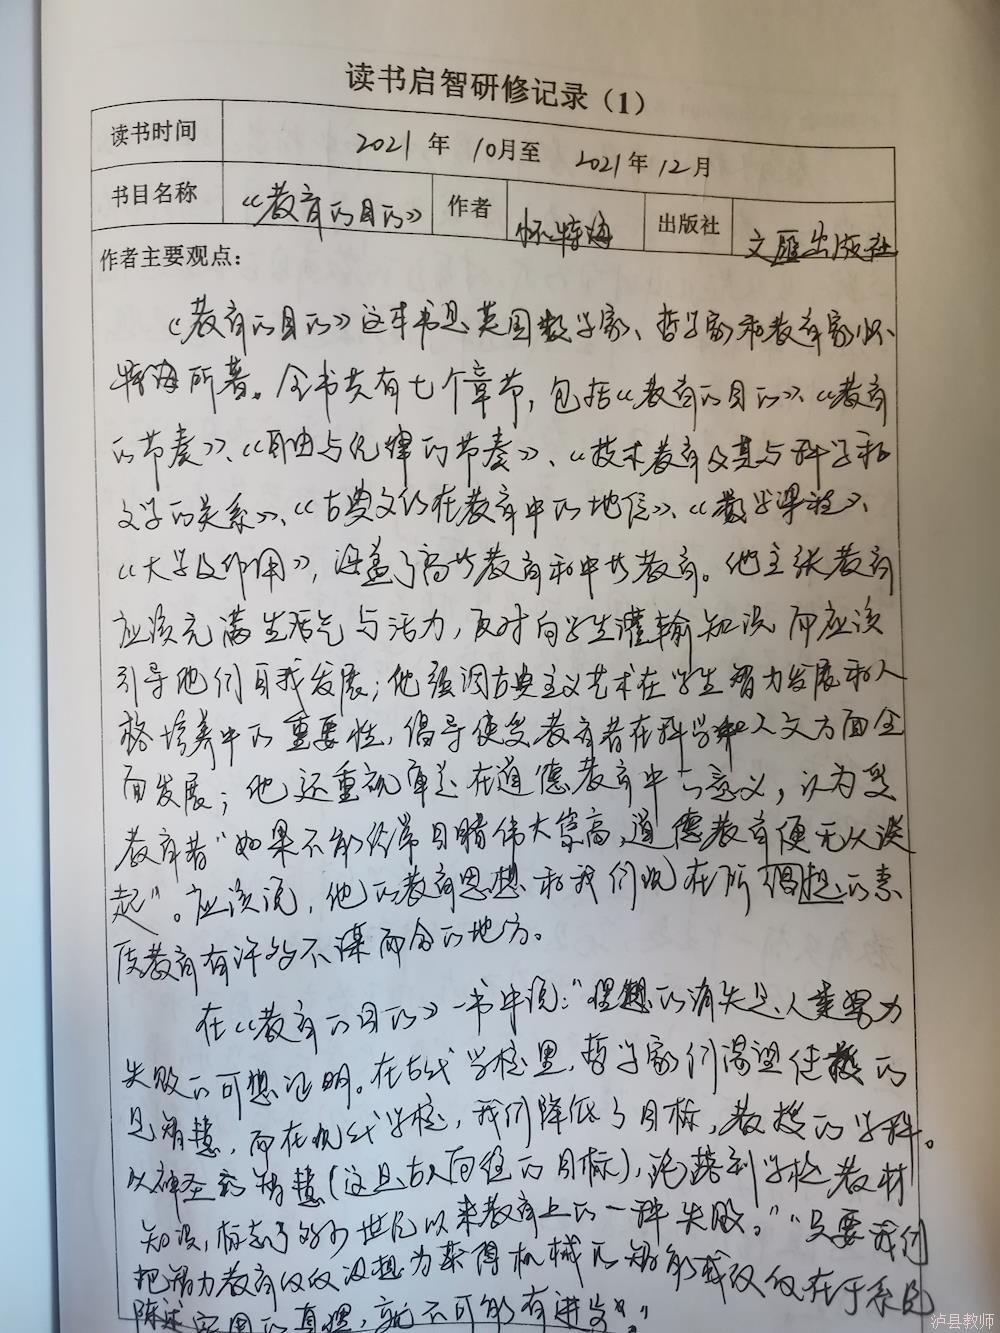 读书启智研修记录（1）
读书时间 2021 年 10月至 2021年12月
书目名称 《教育的目的》 作者 怀特海 出版社 文匯出版社
作者主要观点：
《教育的目的》这本书是英国数学家、哲学家和教育家怀
特海所著。全书共有七个章节，包括《教育的目的》、《教育
的节奏》、《自由与纪律的节奏》、《技术教育及其与科学和
文学的关系》、《古典文化在教育中的地位》、《数学课程》、
《大学及作用》，涵盖了高等教育和中等教育。他主张教育
应该充满生活气与活力，反对向学生灌输知识而应该
引导他们自我发展；他强调古典主义艺术在学生智力发展和人
格培养中的重要性，倡导使受教育者在科学和人文方面全
面发展；他还重视审美在道德教育中的意义，认为受
教育者“如果不能经常目睹伟大崇高，道德教育便无从谈
起”。应该说，他的教育思想和我们现在所倡想的素
质教育有许多不谋而合的地方。
在《教育的目的》一书中说：“理想的消失是人类努力
失败的可悲证明。在古代学校里，哲学家们渴望传授的
是智慧，而在现代学校，我们降低了目标，教授的学科。
从神圣的智慧（这是古人向往的目标），沦落到学校教材
知识，标志了多少世纪以来教育上的一种失败。”“只要我们
把智力教育仅仅设想为获得机械的智能或仅仅在于系统
陈述实用的真理，就不可能有进步”。
泸县教师